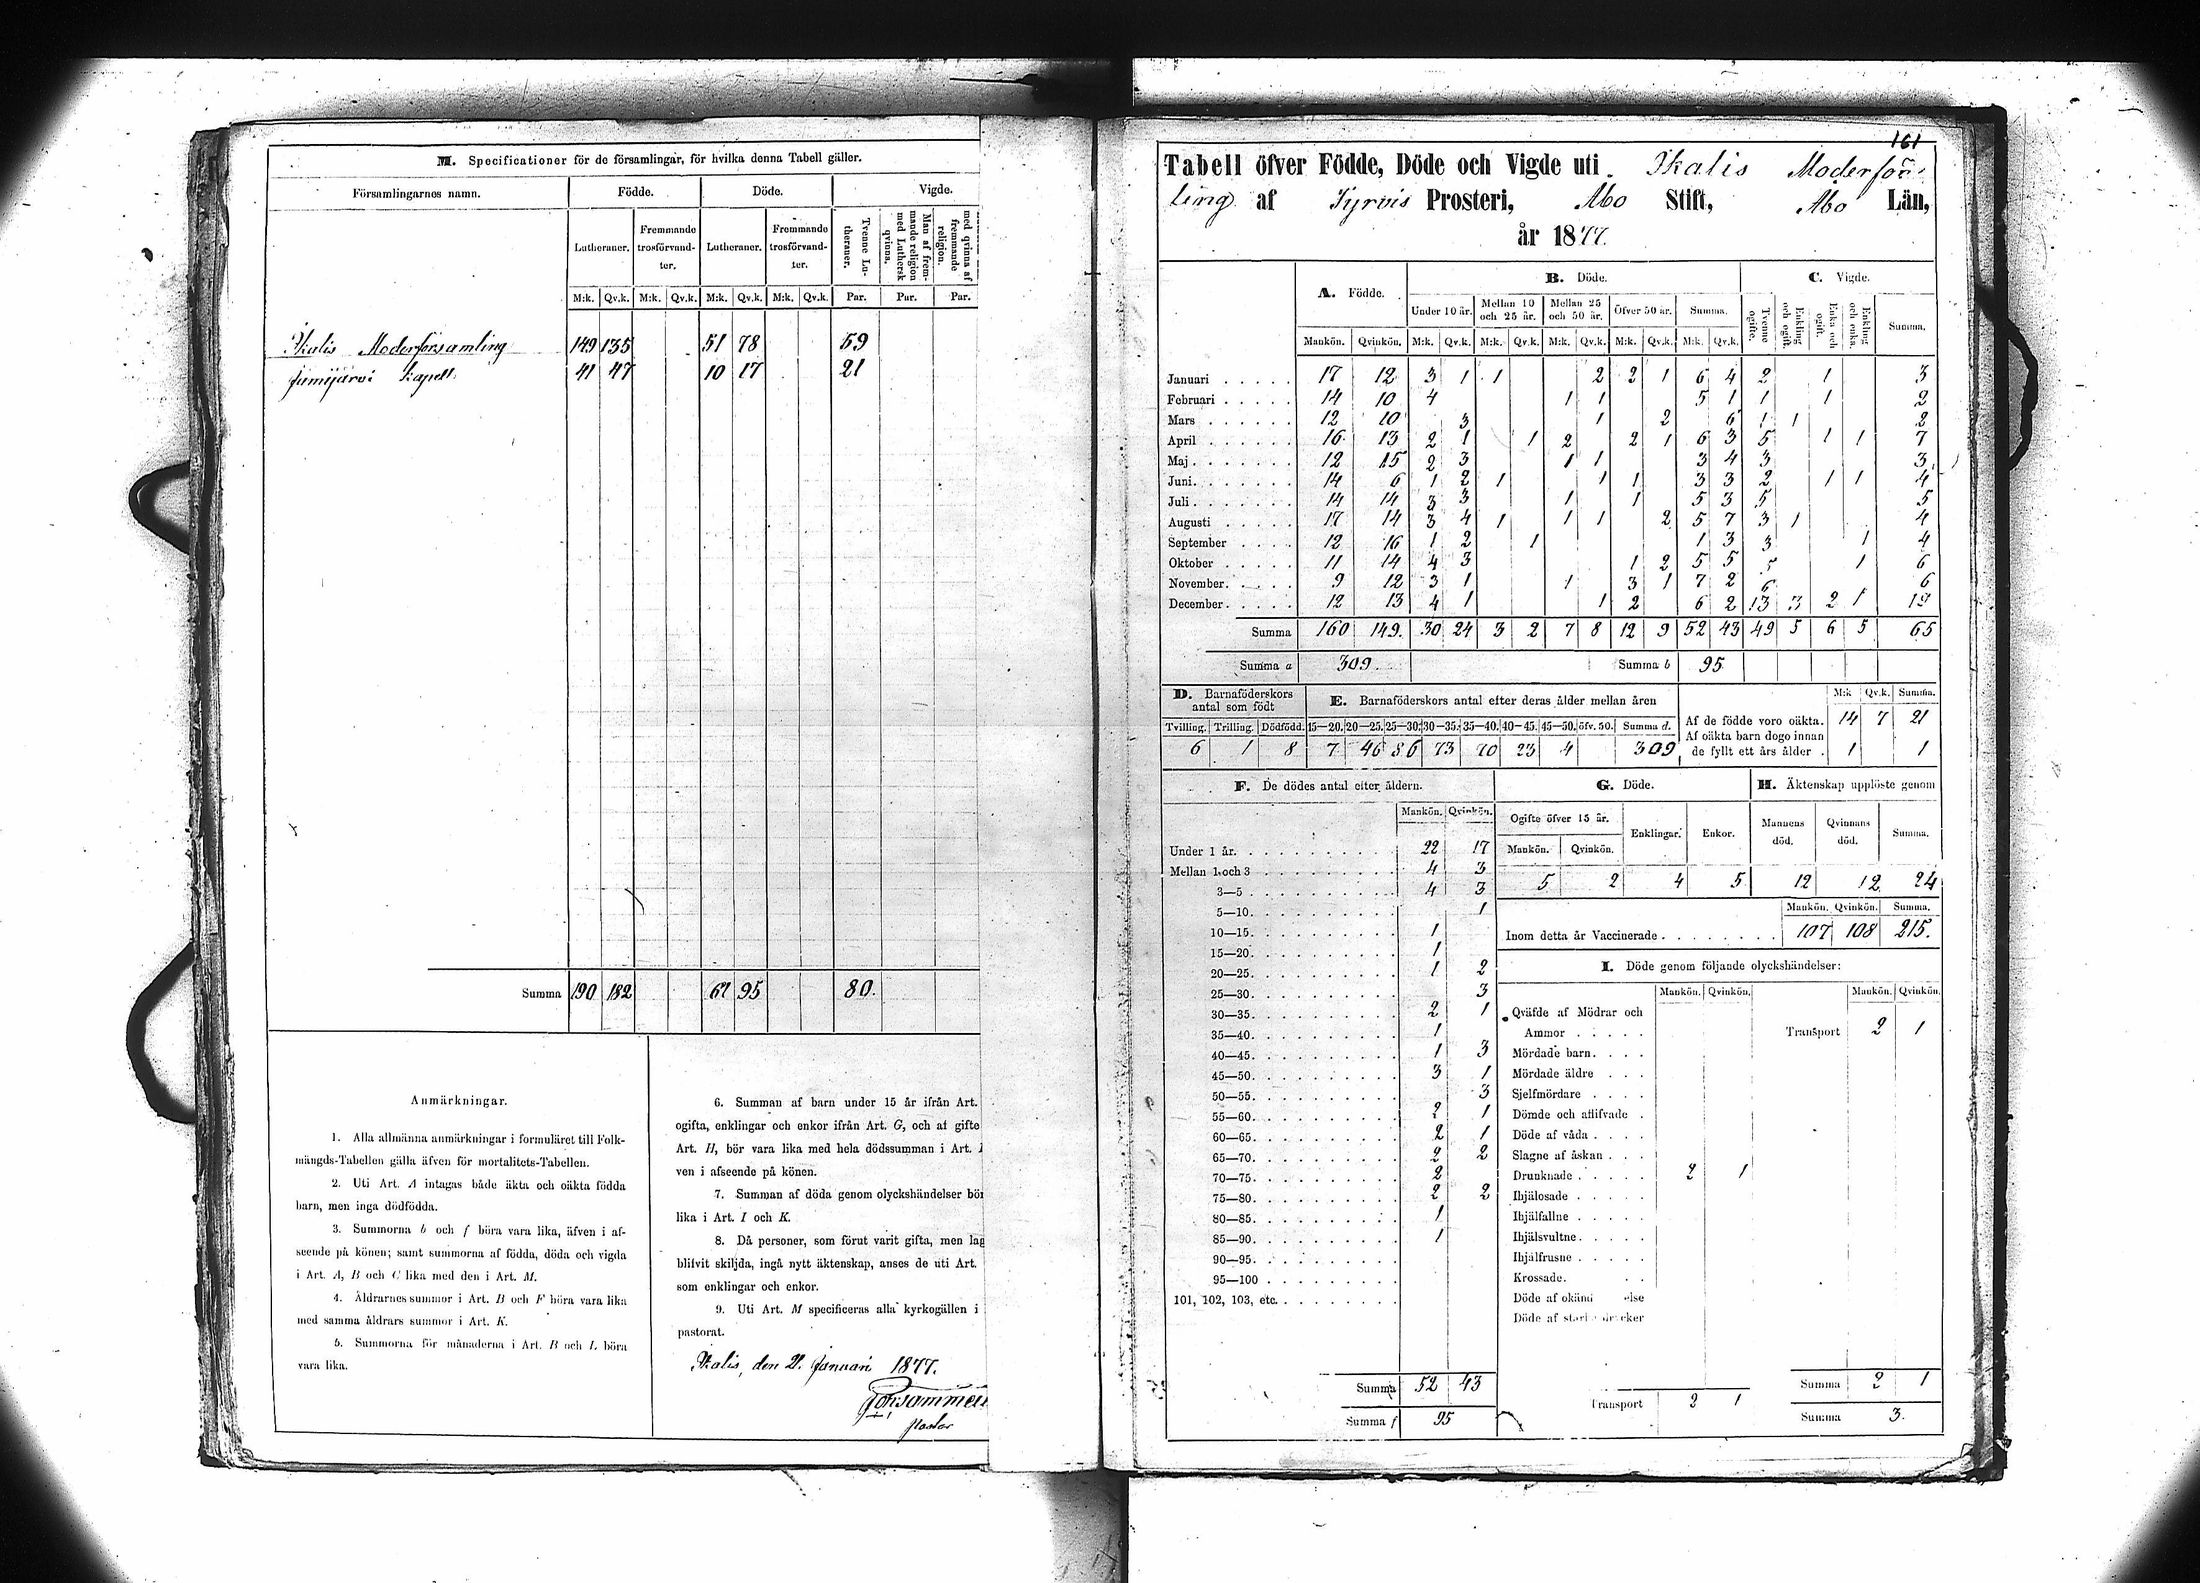 M. Specificationer för de församlingar, för hvilka denna Tabell gäller.
Församlingarnes namn. Födde. Döde. Vigde.
Lutheraner. Fremmande trosförvandter. Lutheraner. Fremmande trosförvandter. Tvenne Lutheraner. Man af fremmande religion med Luthersk qvinna. med qvinna af fremmande religion.
M:k. Qv.k. M:k. Qv.k. M:k. Qv.k. M:k. Qv.k. Par. Par. Par.
Ikalis Moderförsamling 149 135 51 78 59
Jumijärvi Kapell 41 47 10 17 21
Summa 190 182 61 95 80.
Anmärkningar.
1. Alla allmänna anmärkningar i formuläret till Folk-
mängds-Tabellen gälla äfven för mortalitets-Tabellen.
2. Uti Art. A intagas både äkta och oäkta födda
barn, men inga dödfödda.
3. Summorna b och f böra vara lika, äfven i af-
seende på könen; samt summorna af födda, döda och vigda
i Art. A, B och C lika med den i Art. M.
4. Åldrarnes summor i Art. B och F böra vara lika
med samma åldrars summor i Art. K.
5. Summorna för månaderna i Art. B och L böra
vara lika.
6. Summan af barn under 15 år ifrån Art.
ogifta, enklingar och enkor ifrån Art. G, och af gifte
Art. H, bör vara lika med hela dödssumman i Art.
ven i afseende på könen.
7. Summan af döda genom olyckshändelser bör
lika i Art. I och K.
8. Då personer, som förut varit gifta, men lag
blifvit skiljda, ingå nytt äktenskap, anses de uti Art.
som enklingar och enkor.
9. Uti Art. M specificeras alla kyrkogällen i
pastorat.
Ikalis, den 21. Januari 1877.
Pastor
161
Tabell öfver Födde, Döde och Vigde uti Ikalis Moderför
ling af Tyrvis Prosteri, Åbo Stift, Åbo Län,
år 1877.
A. Födde. B. Döde. C. Vigde.
Under 10 år. Mellan 10 och 25 år. Mellan 25 och 50 år. Öfver 50 år. Summa. Tvenne ogifte. Enkling och ogift. Enka och ogift. Enkling och enka. Summa.
Mankön. Qvinkön. M:k. Qv.k. M:k. Qv.k. M:k. Qv.k. M:k. Qv.k. M:k. Qv.k.
Januari 17 12 3 1 1 2 2 1 6 4 2 1 3
Februari 14 10 4 1 1 5 1 1 1 2
Mars 12 10 3 1 2 6 1 1 2
April 16 13 2 1 1 2 2 1 6 3 5 1 1 7
Maj 12 15 2 3 1 1 3 4 3 3
Juni 14 6 1 2 1 1 1 3 3 2 1 1 4
Juli 14 14 3 3 1 1 5 3 5 5
Augusti 17 14 3 4 1 1 1 2 5 7 3 1 4
September 12 16 1 2 1 1 3 3 1 4
Oktober 11 14 4 3 1 2 5 5 5 1 6
November 9 12 3 1 1 3 1 7 2 6 6
December 12 13 4 1 1 2 6 2 13 3 2 1 19
Summa 160 149. 30 24 3 2 7 8 12 9 52 43 49 5 6 5 65
Summa a 309. Summa b 95
D. Barnaföderskors antal som födt E. Barnaföderskors antal efter deras ålder mellan åren M:k Qv.k. Summa.
Tvilling. Trilling. Dödfödd. 15—20. 20—25. 25—30. 30—35. 35—40. 40—45. 45—50. öfv. 50. Summa d.
6 1 8 7 46 86 73 70 23 4 309
Af de födde voro oäkta. 14 7 21
Af oäkta barn dogo innan
de fyllt ett års ålder . 1 1
F. De dödes antal efter åldern.
Mankön. Qvinkön.
Under 1 år. 22 17
Mellan 1 och 3 4 3
3—5 4 3
5—10. 1
10—15. 1
15—20. 1
20—25. 1 2
25—30. 3
30—35. 2 1
35—40. 1
40—45. 1 3
45—50. 3 1
50—55. 3
55—60. 2 1
60—65. 2 1
65—70. 2 2
70—75. 2
75—80. 2 2
80—85. 1
85—90. 1
90—95.
95—100
101, 102, 103, etc.
Summa 52 43
Summa f 95
G. Döde. H. Äktenskap upplöste genom
Ogifte öfver 15 år. Enklingar. Enkor. Mannens död. Qvinnans död. Summa.
Mankön. Qvinkön.
5 2 4 5 12 12 24
Mankön. Qvinkön. Summa.
Inom detta år Vaccinerade 107 108 215.
I. Döde genom följande olyckshändelser:
Mankön. Qvinkön. Mankön. Qvinkön.
Qväfde af Mödrar och
Ammor Transport 2 1
Mördade barn.
Mördade äldre
Sjelfmördare
Dömde och aflifvade
Döde af våda
Slagne af åskan
Drunknade 2 1
Ihjälosade
Ihjälfallne
Ihjälsvultne.
Ihjälfrusne
Krossade.
Döde af okänd else
Döde af starka drycker
Summa 2 1
Transport 2 1
Summa 3.